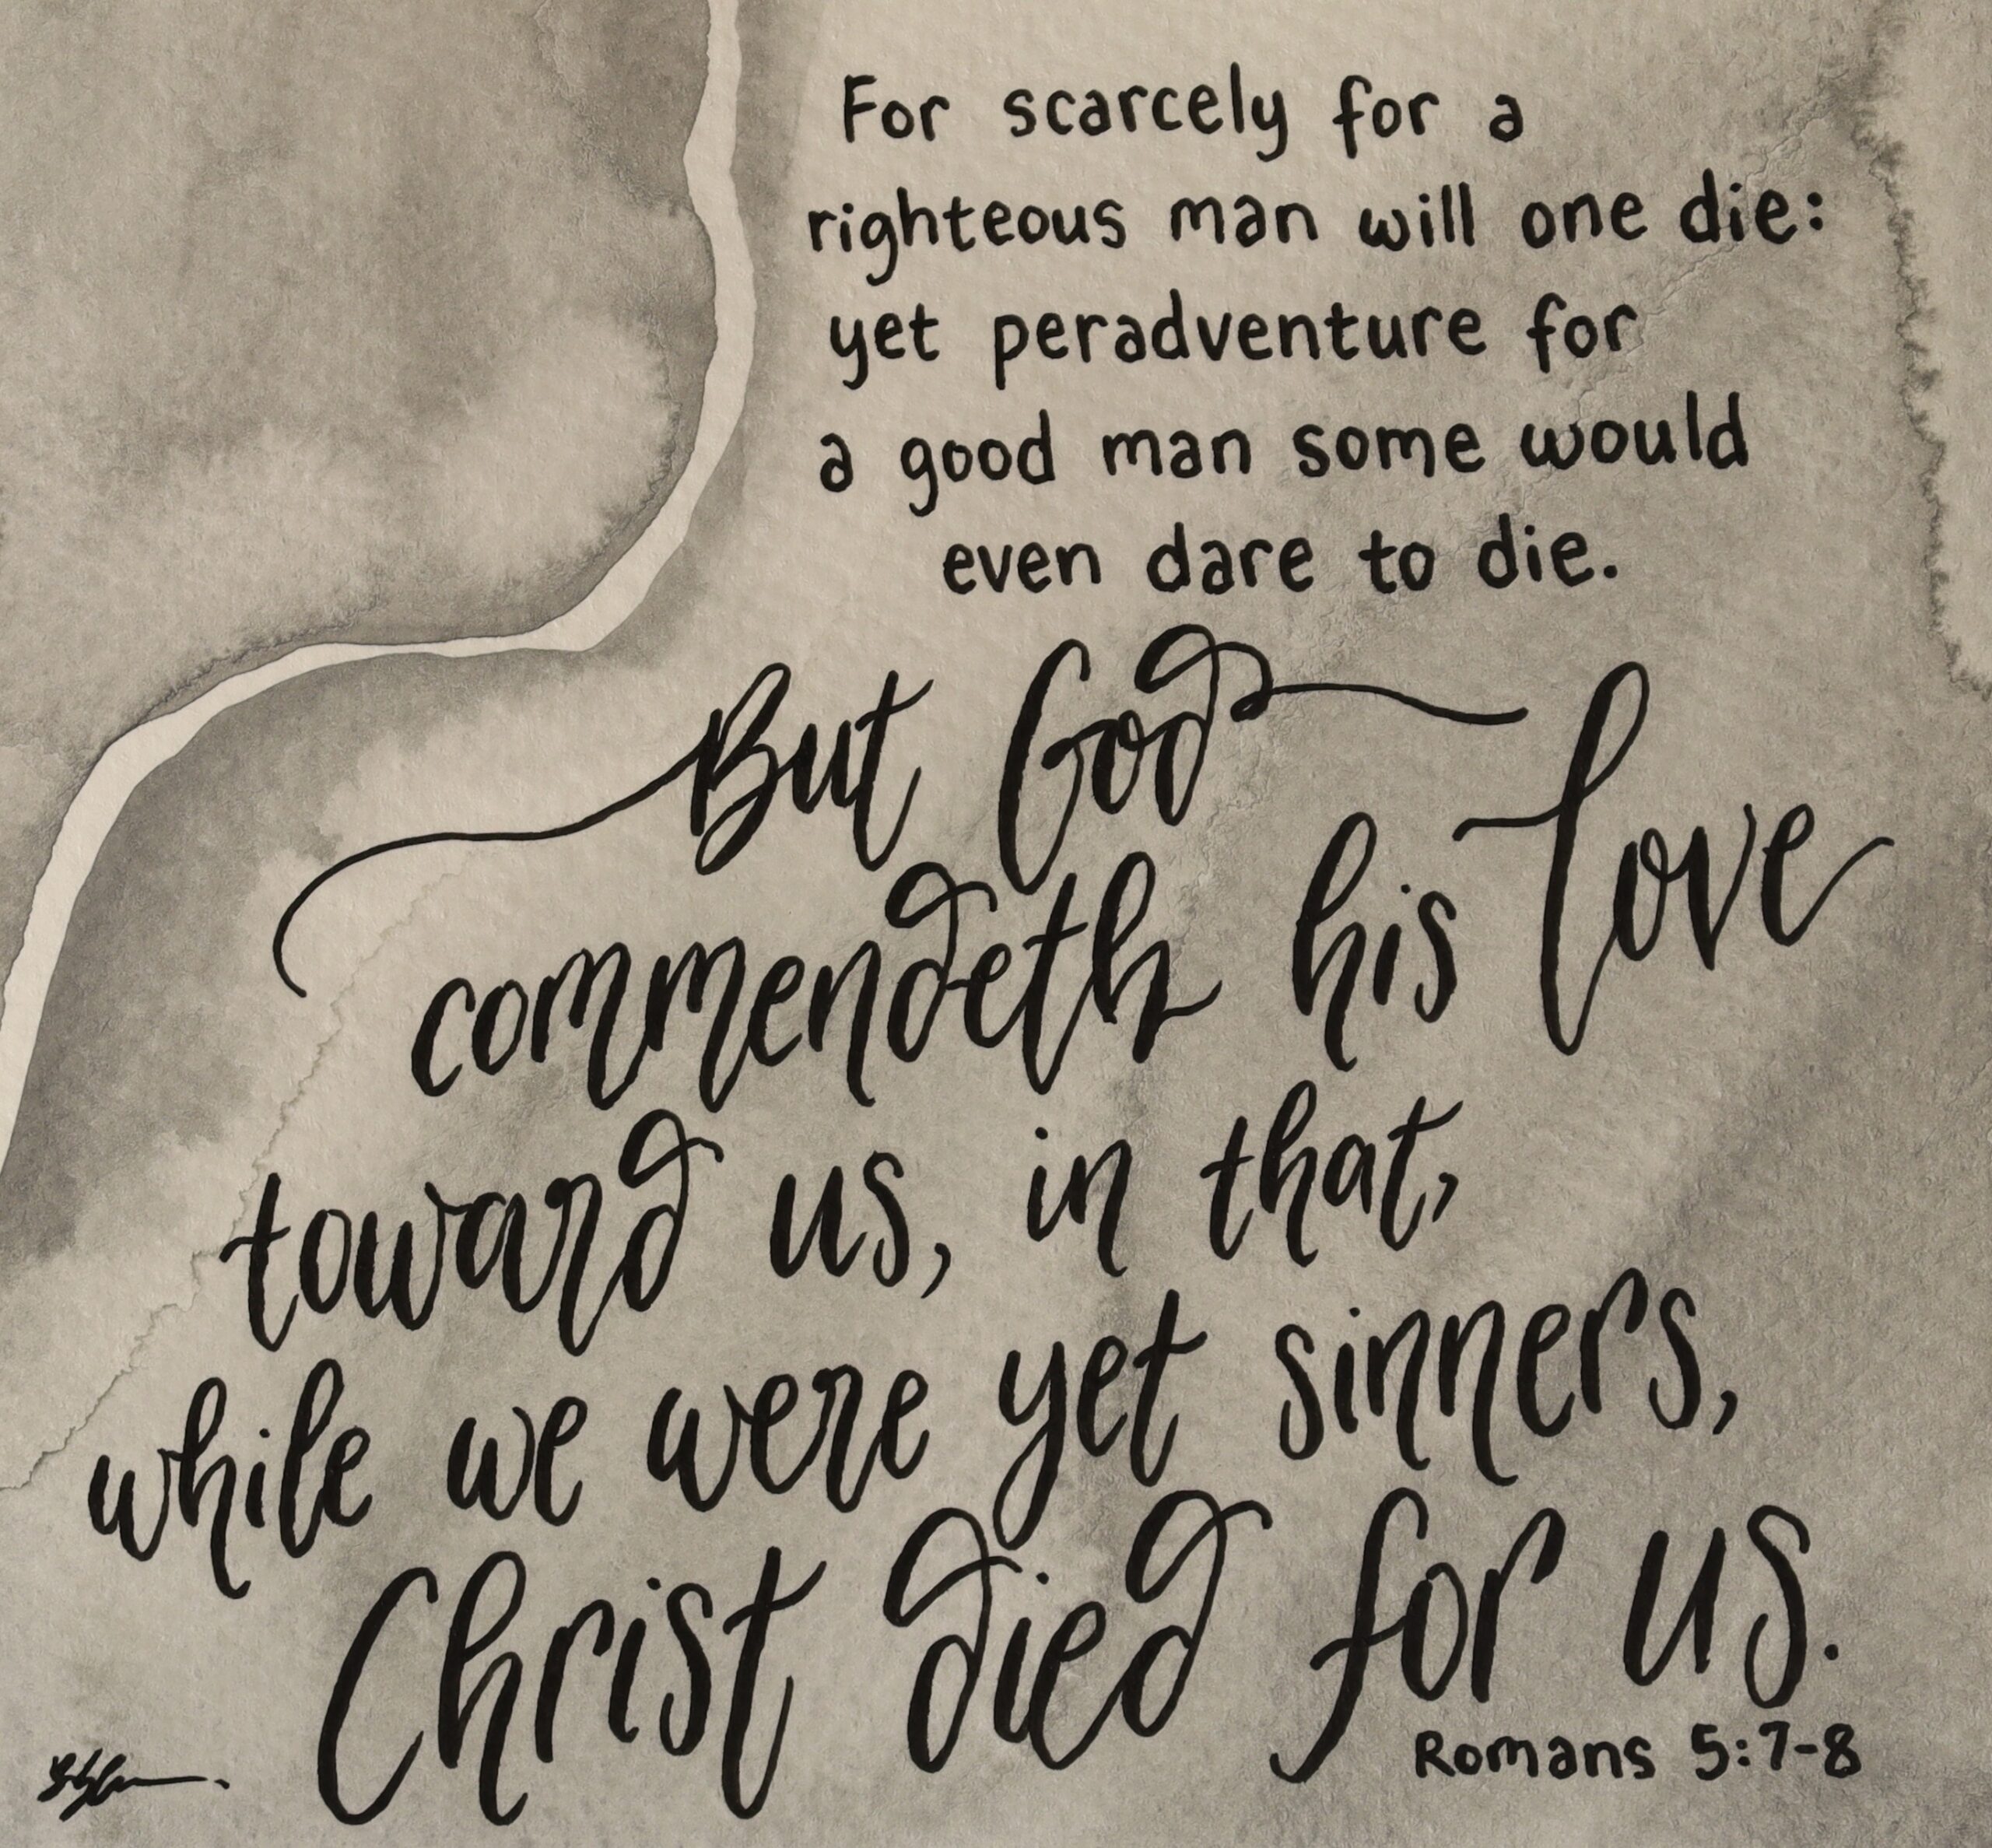 For scarcely for a
righteous man will one die:
yet peradventure for
a good man some would
even dare to die.
But God
commendeth his love
toward us, in that,
while we were yet sinners,
Christ died for us.
Romans 5:7-8